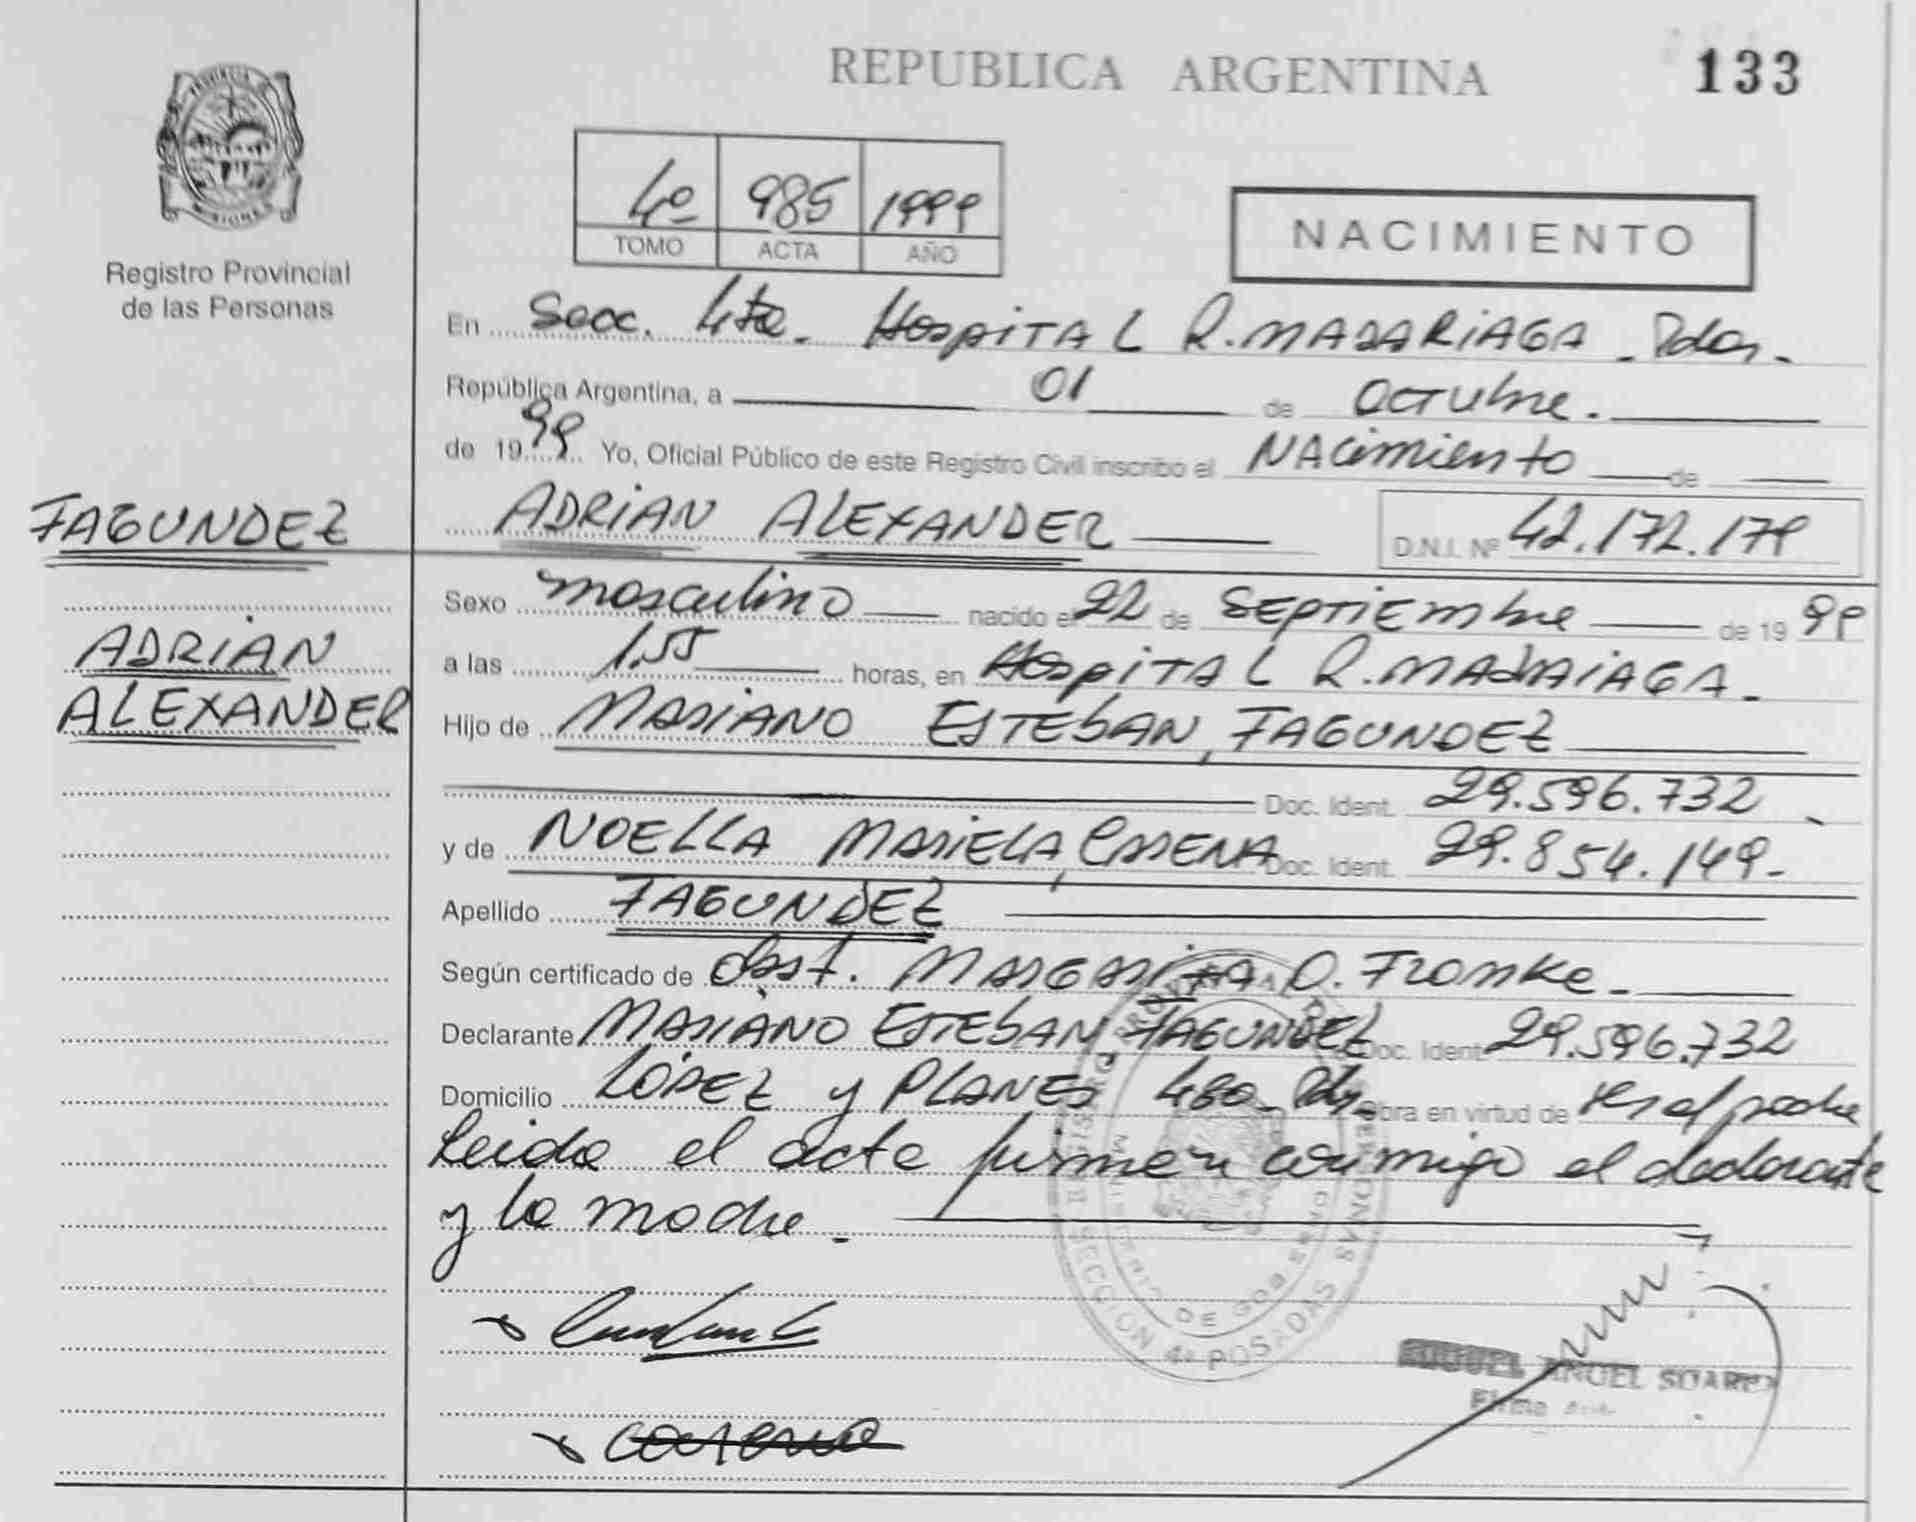 REPUBLICA ARGENTINA
133
PROVINCIA
MISIONES
Registro Provincial
de las Personas
4º 985 1999
TOMO ACTA AÑO
NACIMIENTO
En Secc. 4ta. Hospital R. MADARIAGA - Pdas.
República Argentina, a 01 de Octubre.
de 1999 Yo, Oficial Público de este Registro Civil inscribo el NAcimiento de
ADRIAN ALEXANDER D.N.I. Nº 42.172.179
FAGUNDEZ
ADRIAN
ALEXANDER
Sexo masculino nacido el 22 de SEPTIEmbre de 1999
a las 1.55 horas, en HospiTAL R. MADARIAGA.
Hijo de MARIANO ESTEBAN, FAGUNDEZ
Doc. Ident. 29.596.732
y de NOELIA MARIELA, CARENA Doc. Ident. 29.854.149-
Apellido FAGUNDEZ
Según certificado de obst. MARGARITA O. Fromke.
Declarante MARIANO ESTEBAN FAGUNDEZ Doc. Ident 29.596.732
Domicilio LÓPEZ y PLANES 480 - Pdas. Obra en virtud de ser el padre
Leida el acta firman conmigo el declarante
y la madre.
MINISTERIO DE GOB
SECCION 4ª POSADAS
ANGEL SUAREZ
Firma